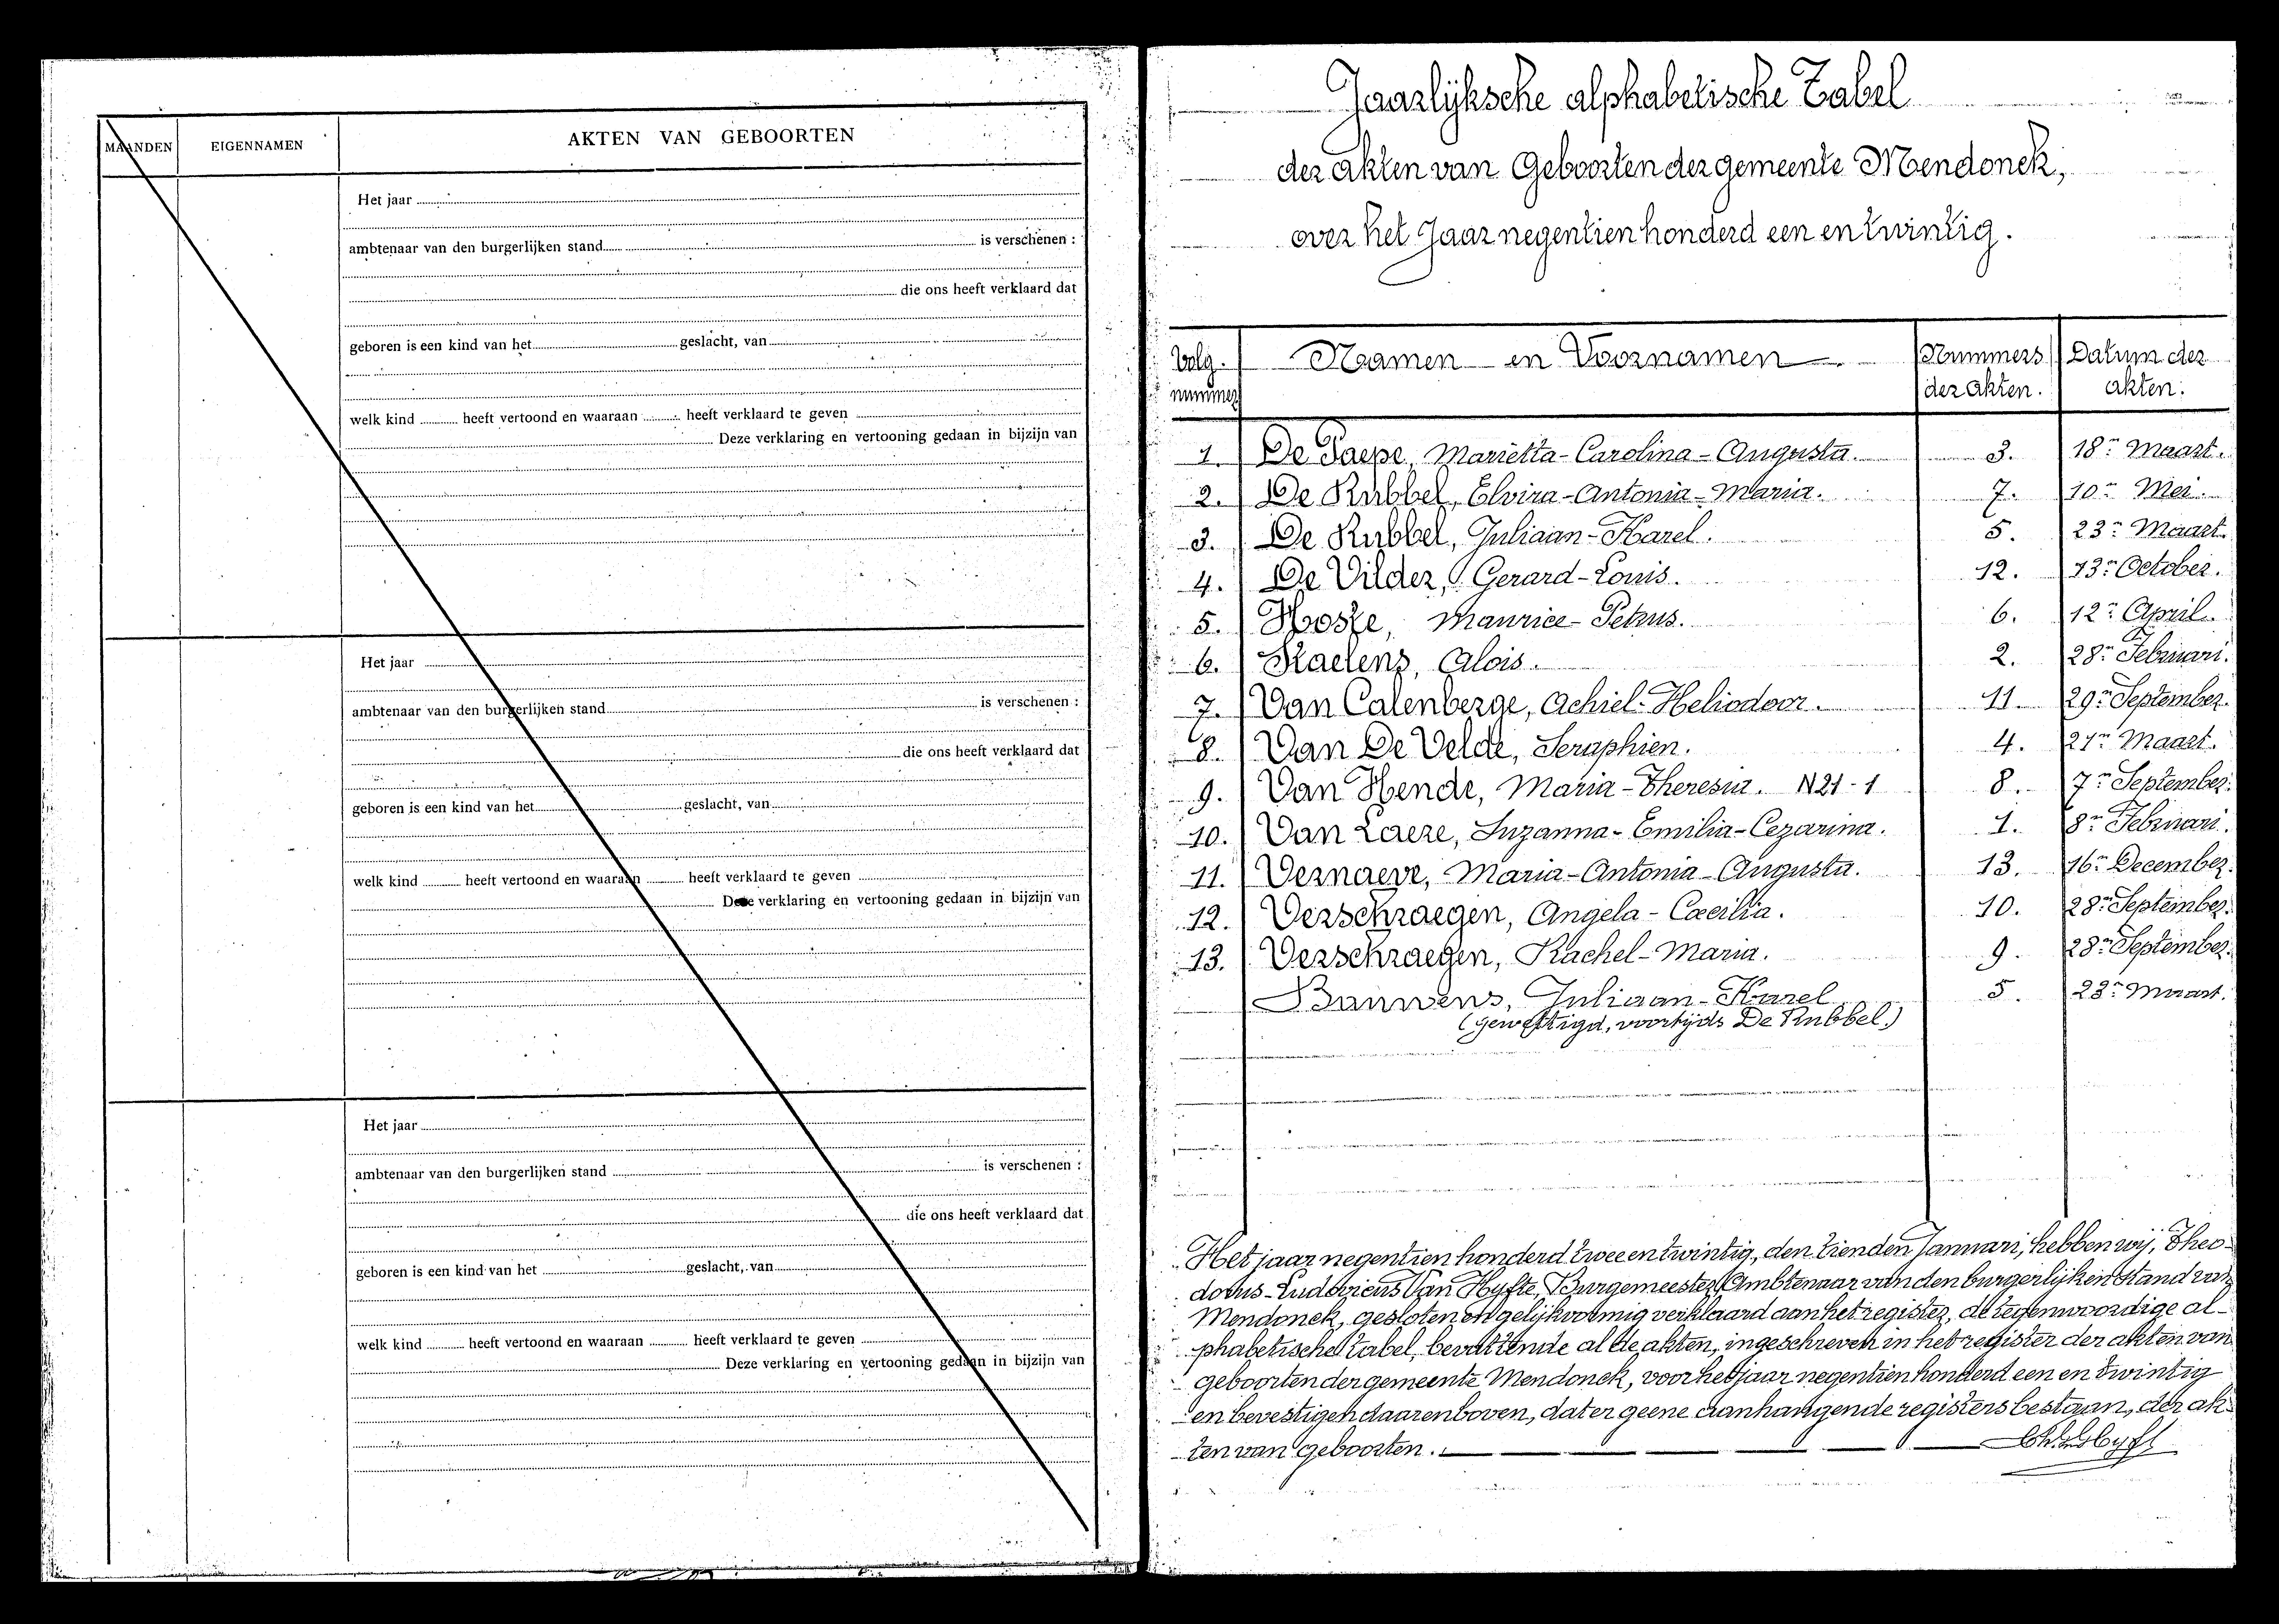 MAANDEN EIGENNAMEN AKTEN VAN GEBOORTEN
Het jaar
ambtenaar van den burgerlijken stand is verschenen :
die ons heeft verklaard dat
geboren is een kind van het geslacht, van
welk kind heeft vertoond en waaraan heeft verklaard te geven
Deze verklaring en vertooning gedaan in bijzijn van
Het jaar
ambtenaar van den burgerlijken stand is verschenen :
die ons heeft verklaard dat
geboren is een kind van het geslacht, van
welk kind heeft vertoond en waaraan heeft verklaard te geven
Deze verklaring en vertooning gedaan in bijzijn van
Het jaar
ambtenaar van den burgerlijken stand is verschenen :
die ons heeft verklaard dat
geboren is een kind van het geslacht, van
welk kind heeft vertoond en waaraan heeft verklaard te geven
Deze verklaring en vertooning gedaan in bijzijn van
Jaarlijksche alphabetische Tabel
der akten van Geboorten der gemeente Mendonck,
over het Jaar negentien honderd een en twintig.
Volg- Naamen en Voornamen Nummers Datum der
nummer der akten. akten.
1. De Paepe, Marietta-Carolina-Augusta. 3. 18n Maart.
2. De Rubbel, Elvira-Antonia-Maria. 7. 10n Mei.
3. De Rubbel, Juliaan-Karel. 5. 23n Maart.
4. De Vilder, Gerard-Louis. 12. 13n October.
5. Hoste, Maurice-Petrus. 6. 12n April.
6. Staelens, Alois. 2. 28n Februari.
7. Van Calenberge, Achiel-Heliodoor. 11. 29n September.
8. Van De Velde, Seraphien. 4. 21n Maart.
9. Van Hende, Maria-Theresia. N21-1 8. 7n September.
10. Van Laere, Suzanna-Emilia-Cezarina. 1. 8n Februari.
11. Vernaeve, Maria-Antonia-Augusta. 13. 16n December.
12. Verschraegen, Angela-Cæcilia. 10. 28n September.
13. Verschraegen, Rachel-Maria. 9. 28n September.
Bauwens, Juliaan-Karel 5. 23n Maart.
(gewettigd, voortijds De Rubbel.)
Het jaar negentien honderd twee en twintig, den tienden Januari, hebben wij, Theo-
dorus-Ludovicus Van Hyfte, Burgemeester, Ambtenaar van den burgerlijken stand van
Mendonck, gesloten en gelijkvormig verklaard aan het register, de tegenwoordige al-
phabetische tabel, bevattende al de akten, ingeschreven in het register der akten van
geboorten der gemeente Mendonck, voor het jaar negentien honderd een en twintig
en bevestigen daarenboven, dat er geene aanhangende registers bestaan, der ak-
ten van geboorten.